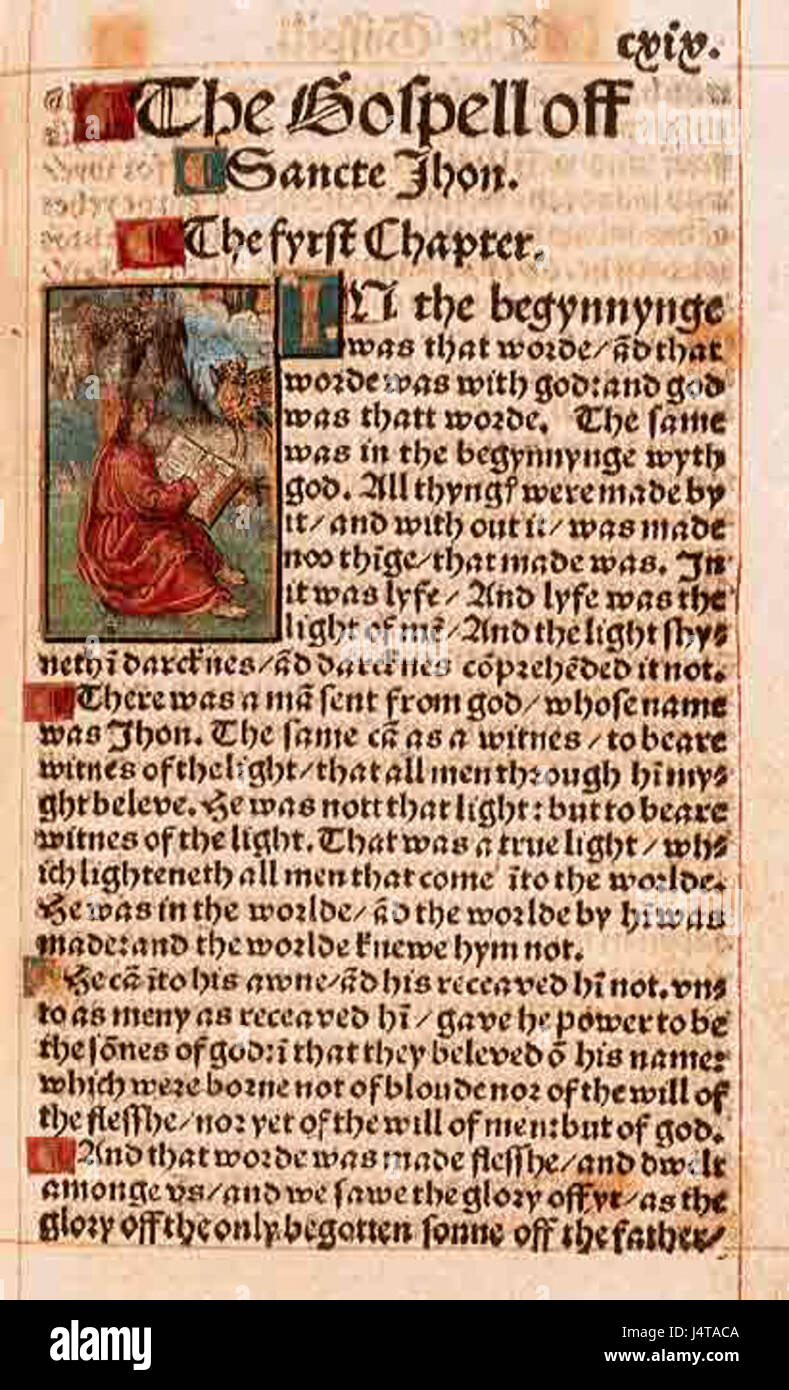 cxix.
The Gospell off
Sancte Jhon.
The fyrst Chapter.
IN the begynnynge
was that worde/ ād that
worde was with god: and god
was thatt worde. The same
was in the begynnynge wyth
god. All thyngꝭ were made by
it/ and with out it/ was made
noo thīge/ that made was. In
it was lyfe/ And lyfe was the
light of mē/ And the light shy⸗
neth ī darcknes/ ād darcknes cōprehēded it not.
There was a mā sent from god/ whose name
was Jhon. The same cā as a witnes/ to beare
witnes of the light/ that all men through hī my⸗
ght beleve. He was nott that light: but to beare
witnes of the light. That was a true light/ wh⸗
ich lighteneth all men that come īto the worlde.
He was in the worlde/ ād the worlde by hī was
made: and the worlde knewe hym not.
He cā īto his awne/ ād his receaved hī not. vn⸗
to as meny as receaved hī/ gave he power to be
the sōnes of god: ī that they beleved ō his name:
which were borne not of bloude nor of the will of
the flesshe/ nor yet of the will of men: but of god.
And that worde was made flesshe/ and dwelt
amonge vs/ and we sawe the glory off yt/ as the
glory off the only begotten sonne off the father/
alamy
Image ID: J4TACA
www.alamy.com